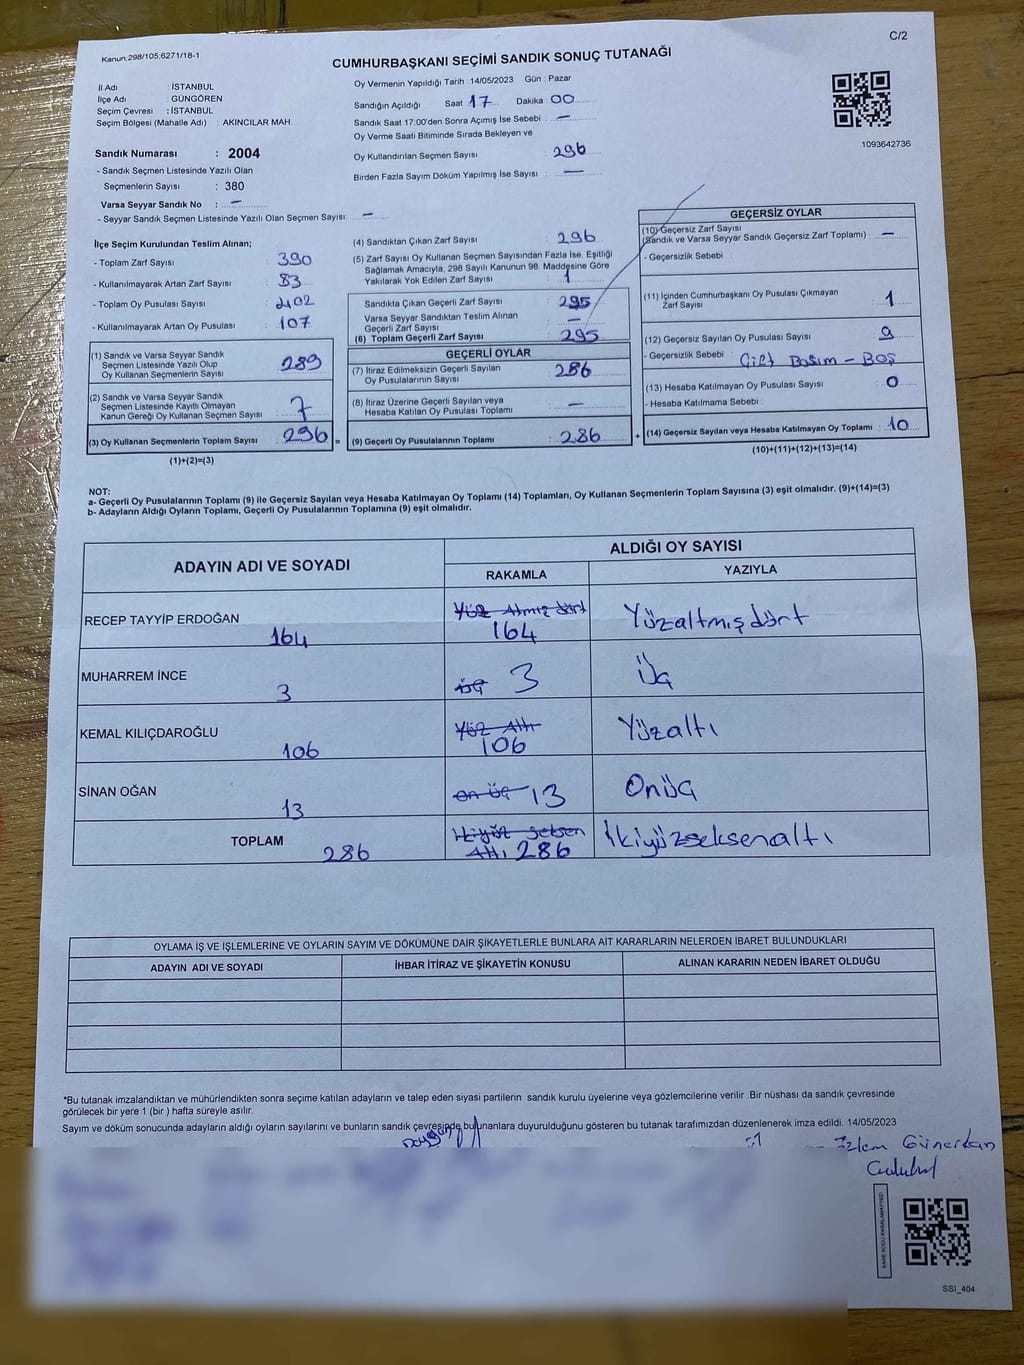 Kanun;298/105;6271/18-1
C/2
CUMHURBAŞKANI SEÇİMİ SANDIK SONUÇ TUTANAĞI
İl Adı : İSTANBUL
İlçe Adı : GÜNGÖREN
Seçim Çevresi : İSTANBUL
Seçim Bölgesi (Mahalle Adı) : AKINCILAR MAH.
Sandık Numarası : 2004
- Sandık Seçmen Listesinde Yazılı Olan
Seçmenlerin Sayısı : 380
Varsa Seyyar Sandık No : —
- Seyyar Sandık Seçmen Listesinde Yazılı Olan Seçmen Sayısı: —
Oy Vermenin Yapıldığı Tarih : 14/05/2023 Gün : Pazar
Sandığın Açıldığı Saat 17 Dakika 00
Sandık Saat 17:00'den Sonra Açımış İse Sebebi : —
Oy Verme Saati Bitiminde Sırada Bekleyen ve
Oy Kullandırılan Seçmen Sayısı : 296
Birden Fazla Sayım Döküm Yapılmış İse Sayısı : —
1093642736
İlçe Seçim Kurulundan Teslim Alınan;
- Toplam Zarf Sayısı : 390
- Kullanılmayarak Artan Zarf Sayısı : 83
- Toplam Oy Pusulası Sayısı : 402
- Kullanılmayarak Artan Oy Pusulası : 107
(1) Sandık ve Varsa Seyyar Sandık
Seçmen Listesinde Yazılı Olup
Oy Kullanan Seçmenlerin Sayısı : 289
(2) Sandık ve Varsa Seyyar Sandık
Seçmen Listesinde Kayıtlı Olmayan
Kanun Gereği Oy Kullanan Seçmen Sayısı : 7
(3) Oy Kullanan Seçmenlerin Toplam Sayısı : 296 =
(1)+(2)=(3)
(4) Sandıktan Çıkan Zarf Sayısı : 296
(5) Zarf Sayısı Oy Kullanan Seçmen Sayısından Fazla İse, Eşitliği
Sağlamak Amacıyla, 298 Sayılı Kanunun 98. Maddesine Göre
Yakılarak Yok Edilen Zarf Sayısı : 1
Sandıkta Çıkan Geçerli Zarf Sayısı : 295
Varsa Seyyar Sandıktan Teslim Alınan
Geçerli Zarf Sayısı : —
(6) Toplam Geçerli Zarf Sayısı : 295
GEÇERLİ OYLAR
(7) İtiraz Edilmeksizin Geçerli Sayılan
Oy Pusulalarının Sayısı : 286
(8) İtiraz Üzerine Geçerli Sayılan veya
Hesaba Katılan Oy Pusulası Toplamı : —
(9) Geçerli Oy Pusulalarının Toplamı : 286 +
GEÇERSİZ OYLAR
(10) Geçersiz Zarf Sayısı
(Sandık ve Varsa Seyyar Sandık Geçersiz Zarf Toplamı) : —
- Geçersizlik Sebebi :
(11) İçinden Cumhurbaşkanı Oy Pusulası Çıkmayan
Zarf Sayısı : 1
(12) Geçersiz Sayılan Oy Pusulası Sayısı : 9
- Geçersizlik Sebebi : Çift Basım - BOŞ
(13) Hesaba Katılmayan Oy Pusulası Sayısı : 0
- Hesaba Katılmama Sebebi :
(14) Geçersiz Sayılan veya Hesaba Katılmayan Oy Toplamı : 10
(10)+(11)+(12)+(13)=(14)
NOT:
a- Geçerli Oy Pusulalarının Toplamı (9) ile Geçersiz Sayılan veya Hesaba Katılmayan Oy Toplamı (14) Toplamları, Oy Kullanan Seçmenlerin Toplam Sayısına (3) eşit olmalıdır. (9)+(14)=(3)
b- Adayların Aldığı Oyların Toplamı, Geçerli Oy Pusulalarının Toplamına (9) eşit olmalıdır.
ADAYIN ADI VE SOYADI
ALDIĞI OY SAYISI
RAKAMLA YAZIYLA
RECEP TAYYİP ERDOĞAN 164 Yüz Atmış dört 164 Yüzaltmışdört
MUHARREM İNCE 3 üç 3 Üç
KEMAL KILIÇDAROĞLU 106 Yüz Altı 106 Yüzaltı
SİNAN OĞAN 13 on üç 13 Onüç
TOPLAM 286 İkiyüz Seksen Altı 286 İkiyüzseksenaltı
OYLAMA İŞ VE İŞLEMLERİNE VE OYLARIN SAYIM VE DÖKÜMÜNE DAİR ŞİKAYETLERLE BUNLARA AİT KARARLARIN NELERDEN İBARET BULUNDUKLARI
ADAYIN ADI VE SOYADI İHBAR İTİRAZ VE ŞİKAYETİN KONUSU ALINAN KARARIN NEDEN İBARET OLDUĞU
*Bu tutanak imzalandıktan ve mühürlendikten sonra seçime katılan adayların ve talep eden siyasi partilerin sandık kurulu üyelerine veya gözlemcilerine verilir .Bir nüshası da sandık çevresinde
görülecek bir yere 1 (bir ) hafta süreyle asılır.
Sayım ve döküm sonucunda adayların aldığı oyların sayılarını ve bunların sandık çevresinde bulunanlara duyurulduğunu gösteren bu tutanak tarafımızdan düzenlenerek imza edildi. 14/05/2023
SSI_404